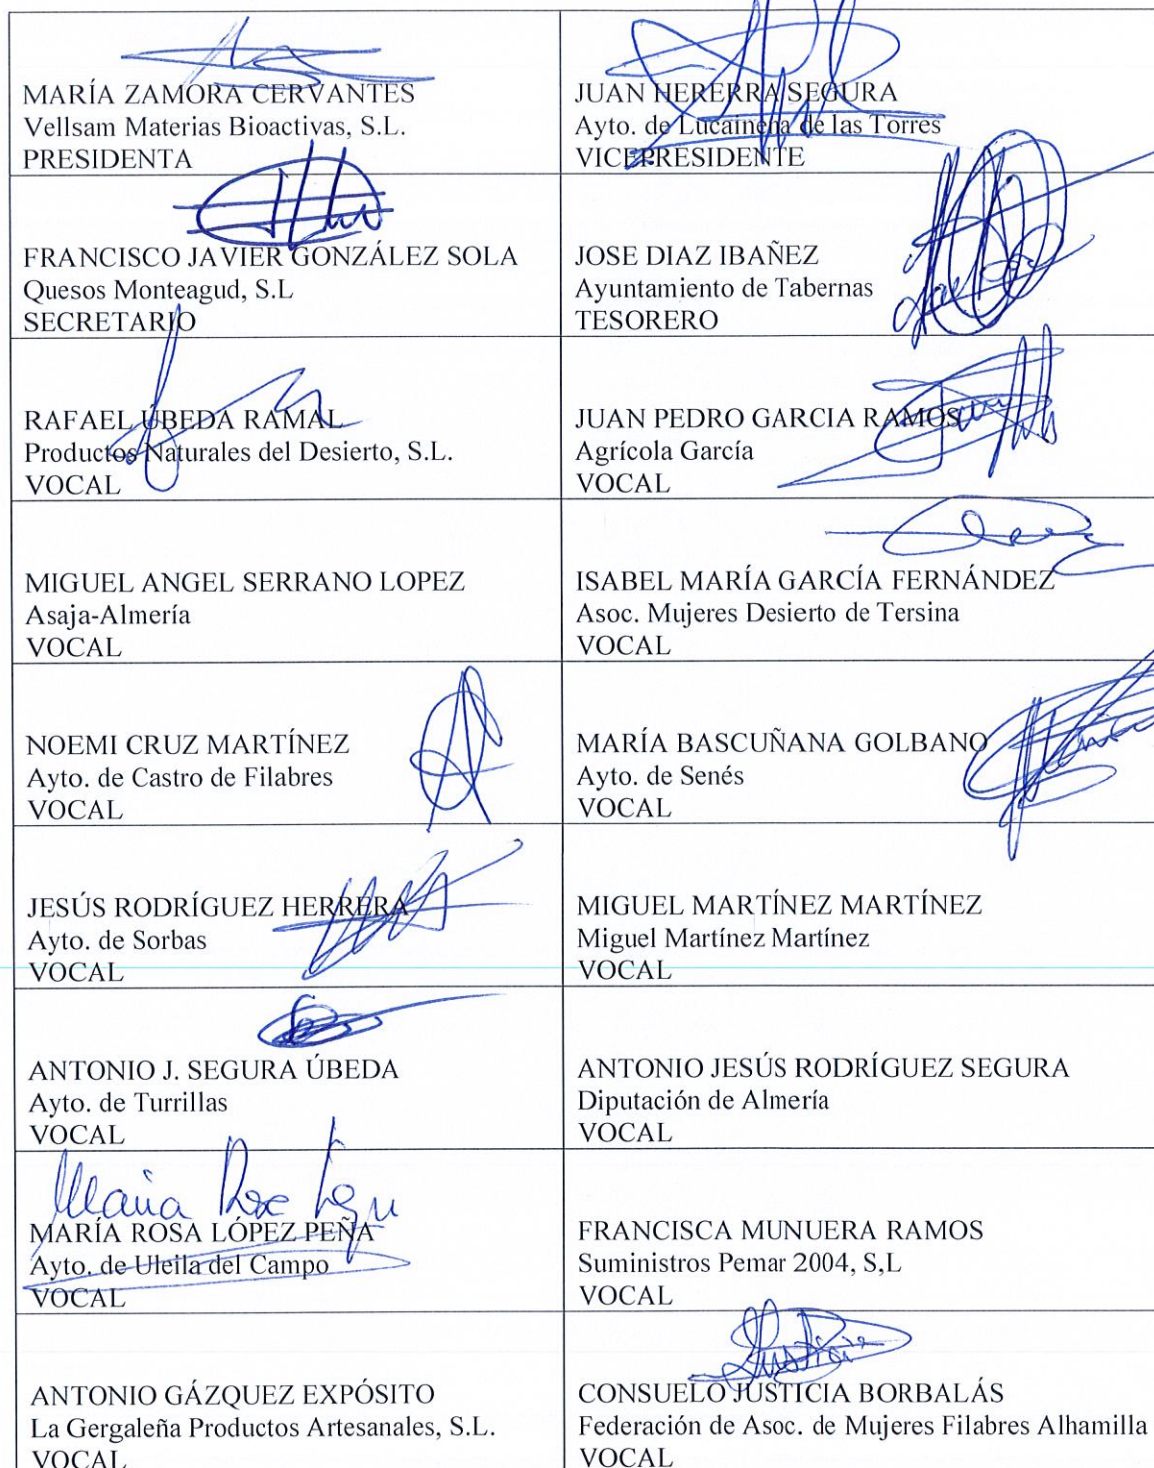 MARÍA ZAMORA CERVANTES
Vellsam Materias Bioactivas, S.L.
PRESIDENTA
JUAN HERERRA SEGURA
Ayto. de Lucainena de las Torres
VICEPRESIDENTE
FRANCISCO JAVIER GONZÁLEZ SOLA
Quesos Monteagud, S.L
SECRETARIO
JOSE DIAZ IBAÑEZ
Ayuntamiento de Tabernas
TESORERO
RAFAEL ÚBEDA RAMAL
Productos Naturales del Desierto, S.L.
VOCAL
JUAN PEDRO GARCIA RAMOS
Agrícola García
VOCAL
MIGUEL ANGEL SERRANO LOPEZ
Asaja-Almería
VOCAL
ISABEL MARÍA GARCÍA FERNÁNDEZ
Asoc. Mujeres Desierto de Tersina
VOCAL
NOEMI CRUZ MARTÍNEZ
Ayto. de Castro de Filabres
VOCAL
MARÍA BASCUÑANA GOLBANO
Ayto. de Senés
VOCAL
JESÚS RODRÍGUEZ HERRERA
Ayto. de Sorbas
VOCAL
MIGUEL MARTÍNEZ MARTÍNEZ
Miguel Martínez Martínez
VOCAL
ANTONIO J. SEGURA ÚBEDA
Ayto. de Turrillas
VOCAL
ANTONIO JESÚS RODRÍGUEZ SEGURA
Diputación de Almería
VOCAL
María
MARÍA ROSA LÓPEZ PEÑA
Ayto. de Uleila del Campo
VOCAL
FRANCISCA MUNUERA RAMOS
Suministros Pemar 2004, S,L
VOCAL
ANTONIO GÁZQUEZ EXPÓSITO
La Gergaleña Productos Artesanales, S.L.
VOCAL
CONSUELO JUSTICIA BORBALÁS
Federación de Asoc. de Mujeres Filabres Alhamilla
VOCAL